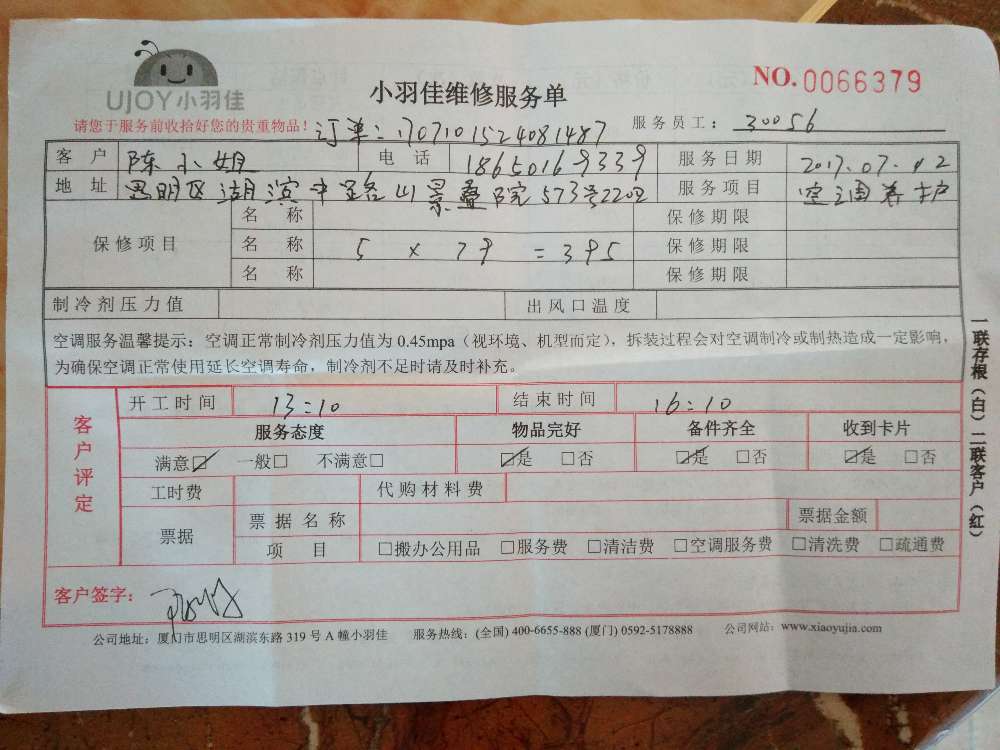 UJOY小羽佳
小羽佳维修服务单
NO.0066379
请您于服务前收拾好您的贵重物品！ 订单：1707101524081487 服务员工： 30056
客 户 陈小姐 电 话 18650169339 服务日期 2017.07.12
地 址 思明区湖滨中路山景叠院573号2202 服务项目 空调养护
保修项目
名 称 保修期限
名 称 5 × 79 = 395 保修期限
名 称 保修期限
制冷剂压力值 出风口温度
空调服务温馨提示：空调正常制冷剂压力值为 0.45mpa（视环境、机型而定），拆装过程会对空调制冷或制热造成一定影响，
为确保空调正常使用延长空调寿命，制冷剂不足时请及时补充。
客户评定
开工时间 13:10 结束时间 16:10
服务态度 物品完好 备件齐全 收到卡片
满意☑ 一般□ 不满意□ ☑是 □否 ☑是 □否 ☑是 □否
工时费 代购材料费
票据 票据名称 票据金额
项 目 □搬办公用品 □服务费 □清洁费 □空调服务费 □清洗费 □疏通费
客户签字：
公司地址：厦门市思明区湖滨东路 319 号 A 幢小羽佳 服务热线：(全国) 400-6655-888 (厦门) 0592-5178888 公司网站：www.xiaoyujia.com
一联存根（白）二联客户（红）